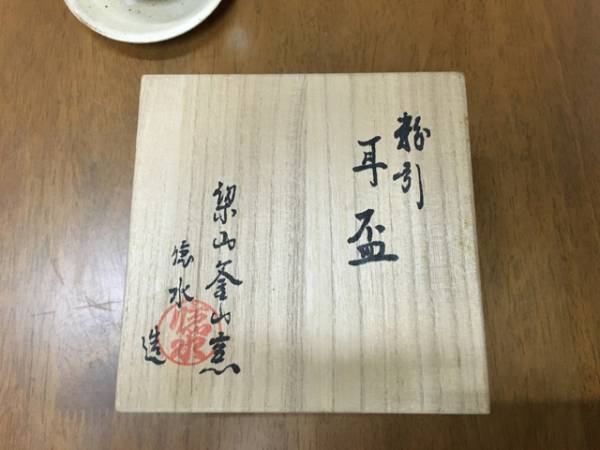 粉引
耳盃
梁山釜山窯
水造